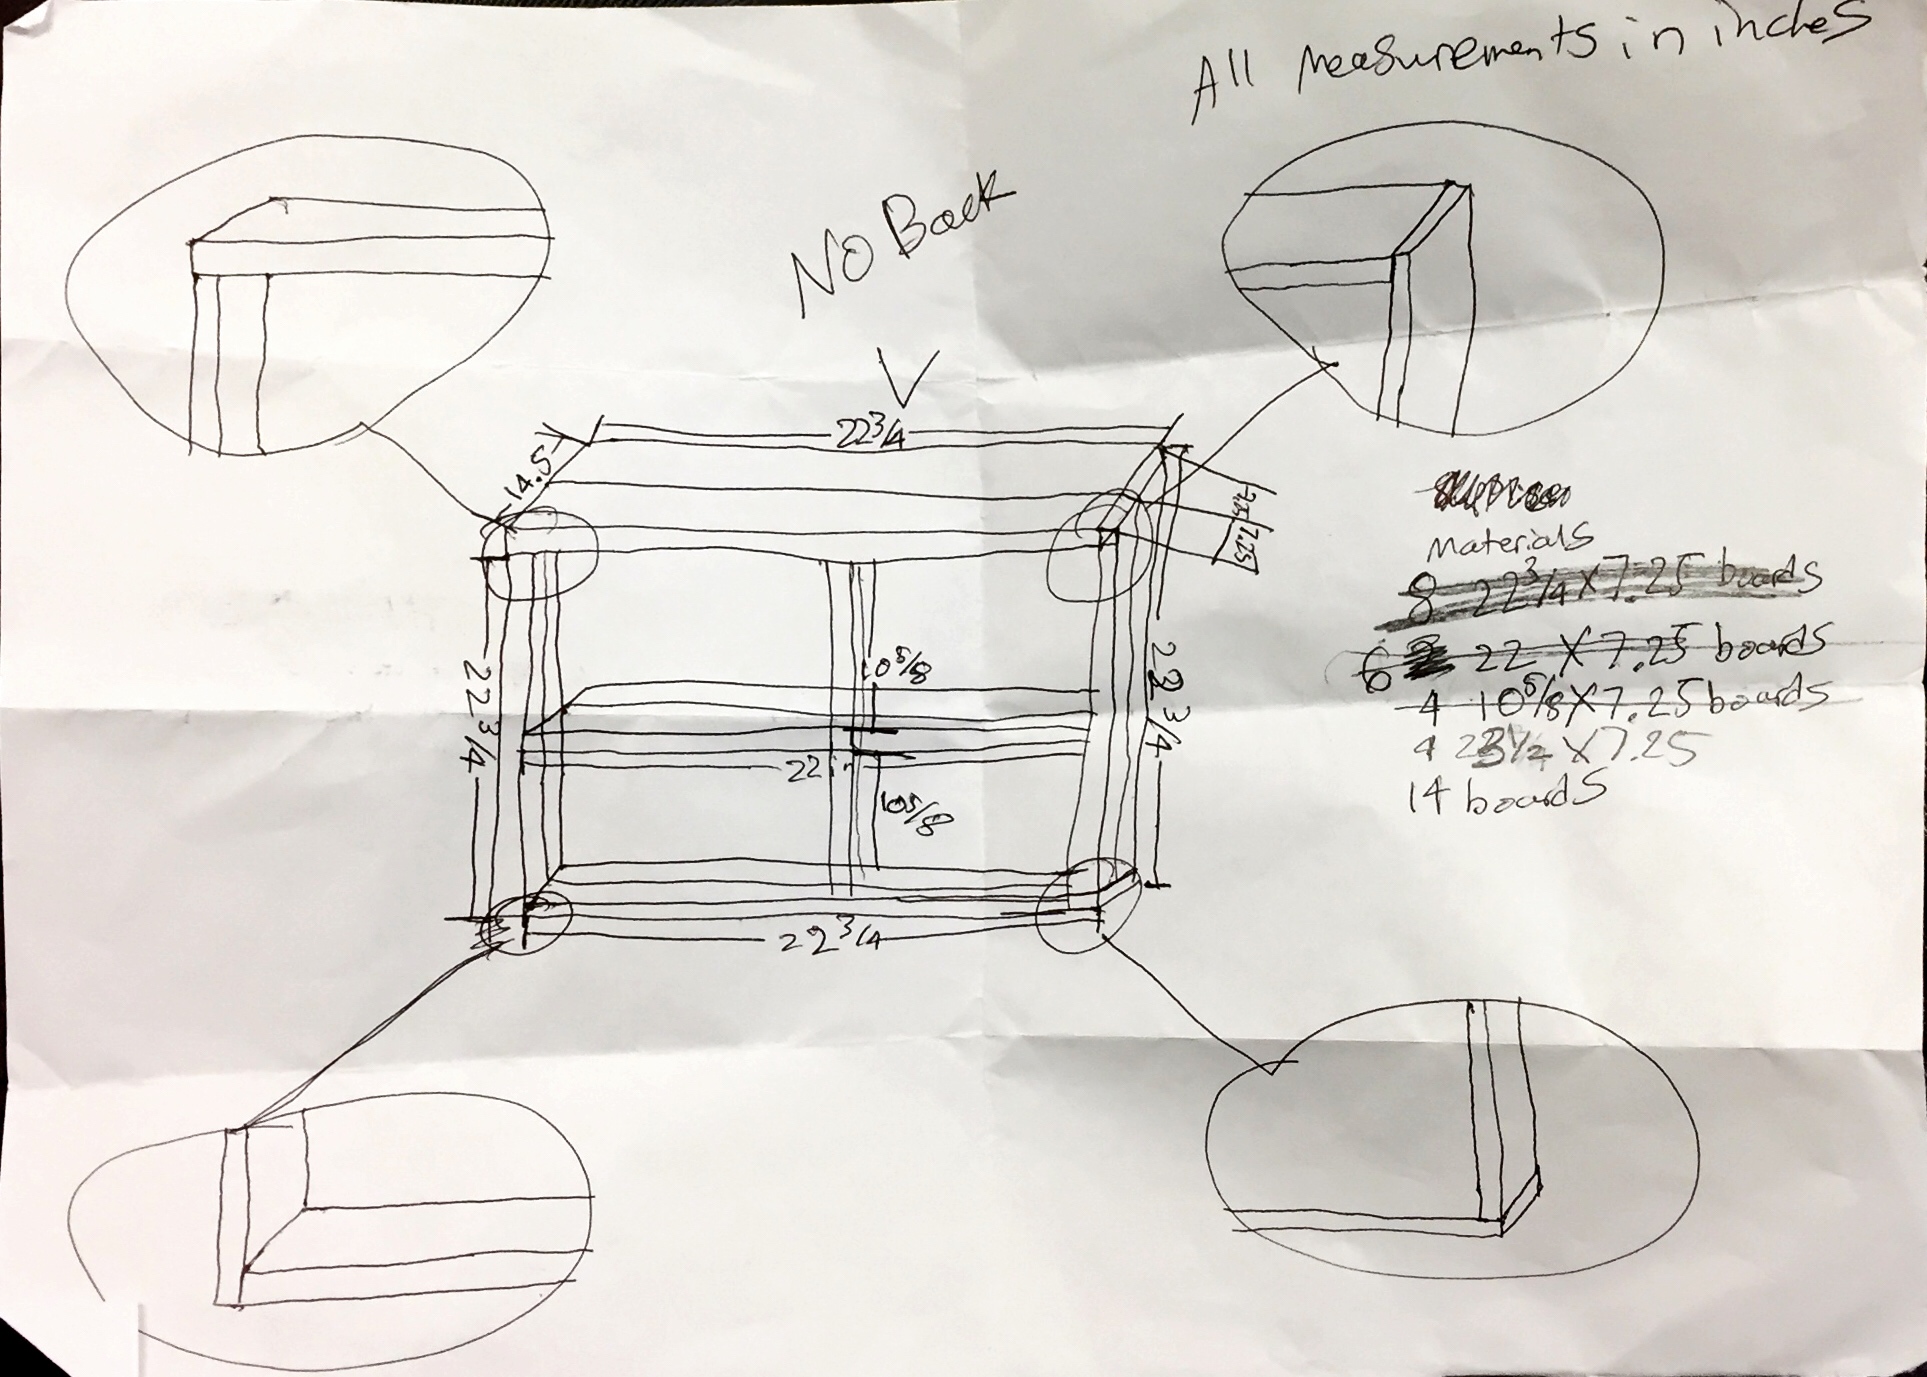 All measurements in inches
No Back
22 3/4
14.5
7.25
7.25
10 5/8
22 3/4
22 3/4
22 in
10 5/8
22 3/4
Materials
8 22 3/4 X 7.25 boards
6 22 X 7.25 boards
4 10 5/8 X 7.25 boards
4 23 1/2 X 7.25
14 boards